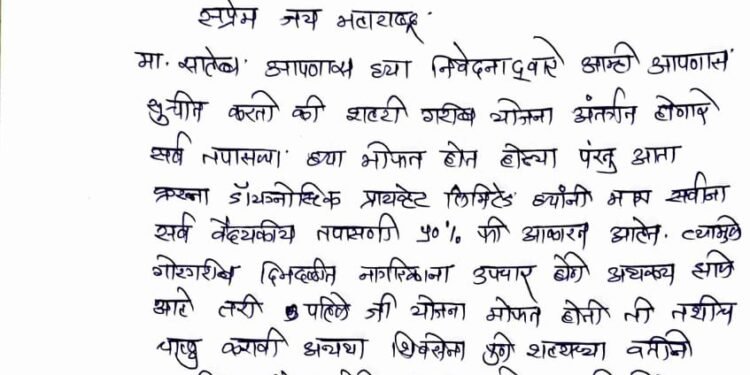 सप्रेम जय महाराष्ट्र
मा. साहेब आपणास ह्या निवेदनाद्वारे आम्ही आपणास
सुचीत करतो की शहरी गरीब योजना अंतर्गत होणारे
सर्व तपासण्या ह्या मोफत होत होत्या परंतु आता
क्रस्ना डॉयग्नोस्टिक प्रायव्हेट लिमिटेड ह्यांनी मात्र सर्वांना
सर्व वैद्यकीय तपासणी ५०% फी आकारत आहेत. त्यामुळे
गोरगरीब दिनदलीत नागरिकांना उपचार घेणे अशक्य झाले
आहे तरी पहिले जी योजना मोफत होती ती तशीच
चालु करावी अन्यथा शिवसेना पुणे शहराच्या वतीने